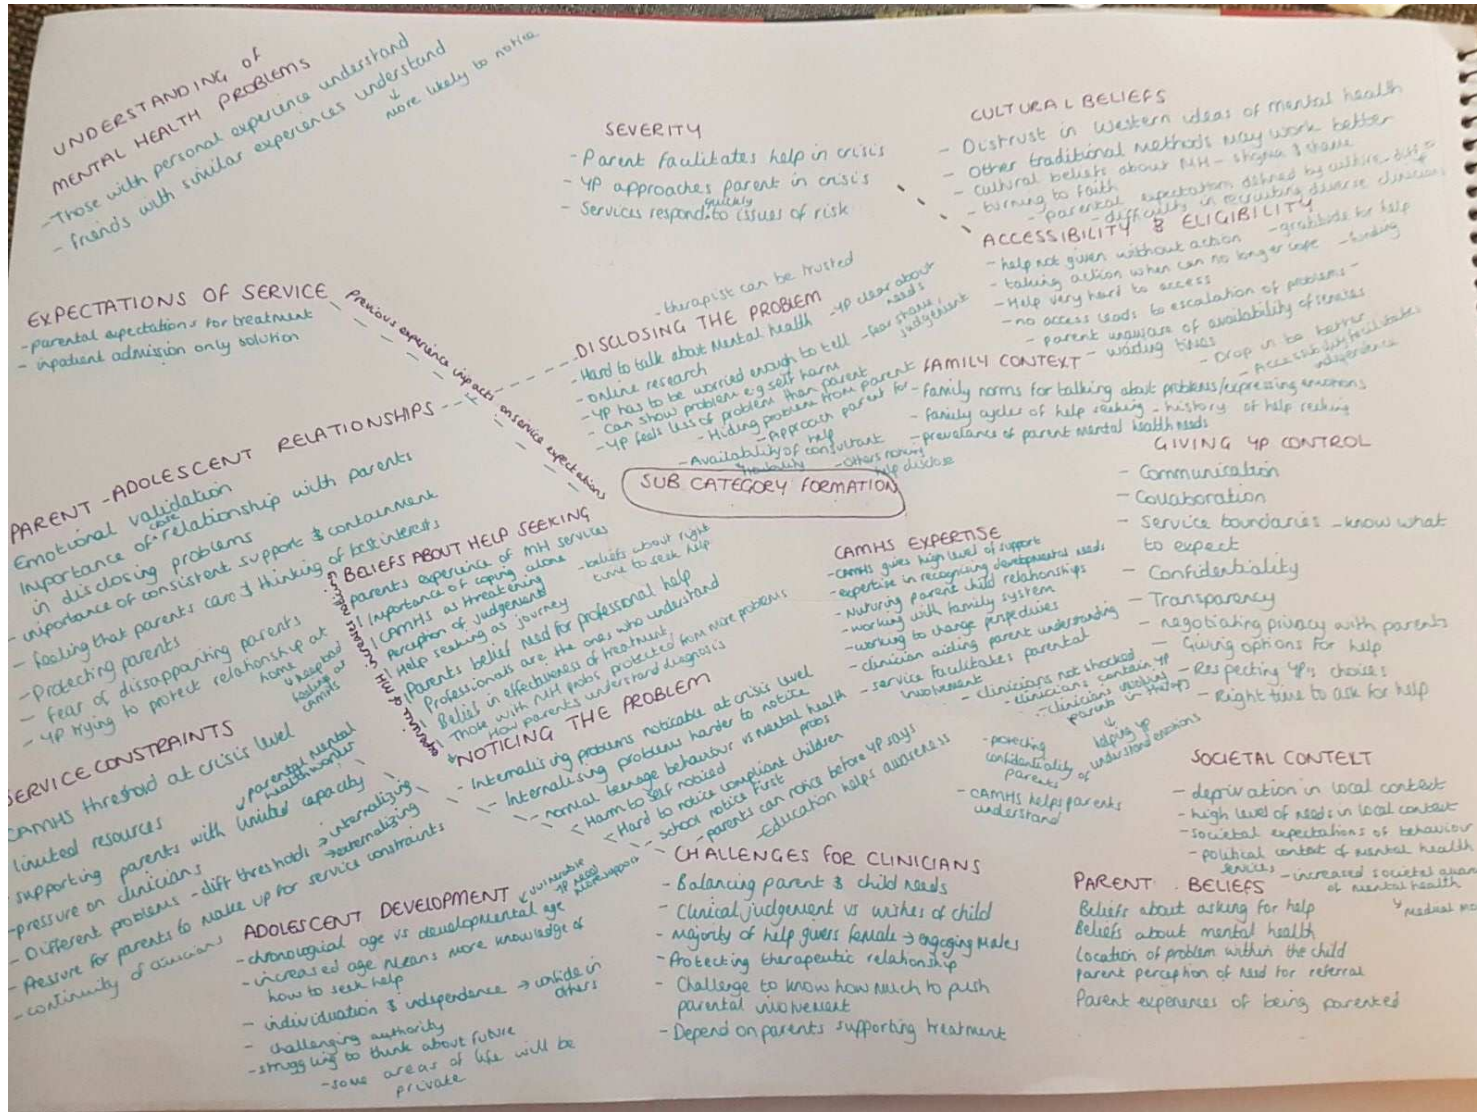 UNDERSTANDING OF
MENTAL HEALTH PROBLEMS
- Those with personal experience understand
- friends with similar experiences understand
↓
more likely to notice
SEVERITY
- Parent facilitates help in crisis
- YP approaches parent in crisis
- Services respond quickly to issues of risk
CULTURAL BELIEFS
- Distrust in Western ideas of mental health
- Other traditional methods may work better
- cultural beliefs about MH - stigma & shame
- turning to faith
- parental expectations defined by culture
- difficulty in recruiting diverse clinicians
ACCESSIBILITY & ELIGIBILITY
- help not given without action - gratitude for help
- taking action when can no longer cope - funding
- Help very hard to access
- no access leads to escalation of problems -
- parent unaware of availability of services
- waiting times
- Drop in be better
- Accessibility facilitates
independence
EXPECTATIONS OF SERVICE
- parental expectations for treatment
- inpatient admission only solution
Previous experience impacts on service expectations
- therapist can be trusted
DISCLOSING THE PROBLEM
- Hard to talk about Mental Health - YP clear about
needs
- online research
- YP has to be worried enough to tell - fear shame,
judgement
- Can show problem e.g self harm
- YP feels less of problem than parent
- Hiding problem from parent
- Approach parent for
help
- Availability of consultant
- Others noticing
help disclose
FAMILY CONTEXT
- family norms for talking about problems/expressing emotions
- family cycles of help seeking - history of help seeking
- prevalance of parent mental health needs
PARENT-ADOLESCENT RELATIONSHIPS
Emotional validation
Importance of close relationship with parents
in disclosing problems
- importance of consistent support & containment
- feeling that parents care & thinking of best interests
- Protecting parents
- fear of dissappointing parents
- YP trying to protect relationship at
home
↓ keep bad
feeling at
CAMHS
SUB CATEGORY FORMATION
BELIEFS ABOUT HELP SEEKING
parents experience of MH services
Importance of coping alone
CAMHS as threatening
Perception of judgement
Help seeking as journey
- beliefs about right
time to seek help
Parents belief need for professional help
Professionals are the ones who understand
Belief in effectiveness of treatment,
Those with MH probs, protected from more problems
How parents understand diagnosis
experience of MH increases noticing
NOTICING THE PROBLEM
- Internalising problems noticable at crisis level
- Internalising problems harder to notice
- normal teenage behaviour vs mental health
probs
- Harm to self noticed
- Hard to notice compliant children
- school notice first
- parents can notice before YP says
- Education helps awareness
CAMHS EXPERTISE
- CAMHS gives high level of support
- expertise in recognising developmental needs
- Nuturing parent child relationships
- working with family system
- working to change perspectives
- clinician aiding parent understanding
- service facilitates parental
involvement
- clinicians not shocked
- clinicians contain YP
- clinicians involving
parents in therapy
↓
helping YP
understand emotions
- protecting
confidentiality of
parents
- CAMHS helps parents
understand
GIVING YP CONTROL
- Communication
- Collaboration
- Service boundaries - know what
to expect
- Confidentiality
- Transparency
- negotiating privacy with parents
- Giving options for help
- Respecting YP's choices
- Right time to ask for help
SERVICE CONSTRAINTS
CAMHS threshold at crisis level
limited resources
↓ parental mental
health worker
supporting parents with limited capacity
- pressure on clinicians
- Different problems - diff thresholds → internalizing
→ externalizing
- Pressure for parents to make up for service constraints
- continuity of clinicians
ADOLESCENT DEVELOPMENT
↓ vulnerable
YP need
more support
- chronological age vs developmental age
- increased age means more knowledge of
how to seek help
- individuation & independence → confide in
others
- challenging authority
- struggling to think about future
- some areas of life will be
private
CHALLENGES FOR CLINICIANS
- Balancing parent & child needs
- Clinical judgement vs wishes of child
- Majority of help givers female → engaging males
- Protecting therapeutic relationship
- Challenge to know how much to push
parental involvement
- Depend on parents supporting treatment
SOCIETAL CONTEXT
- deprivation in local context
- high level of needs in local context
- societal expectations of behaviour
- political context of mental health
services
- increased societal
of mental health
PARENT BELIEFS
Beliefs about asking for help
Beliefs about mental health
Location of problem within the child
parent perception of need for referral
Parent experiences of being parented
↳ Medical